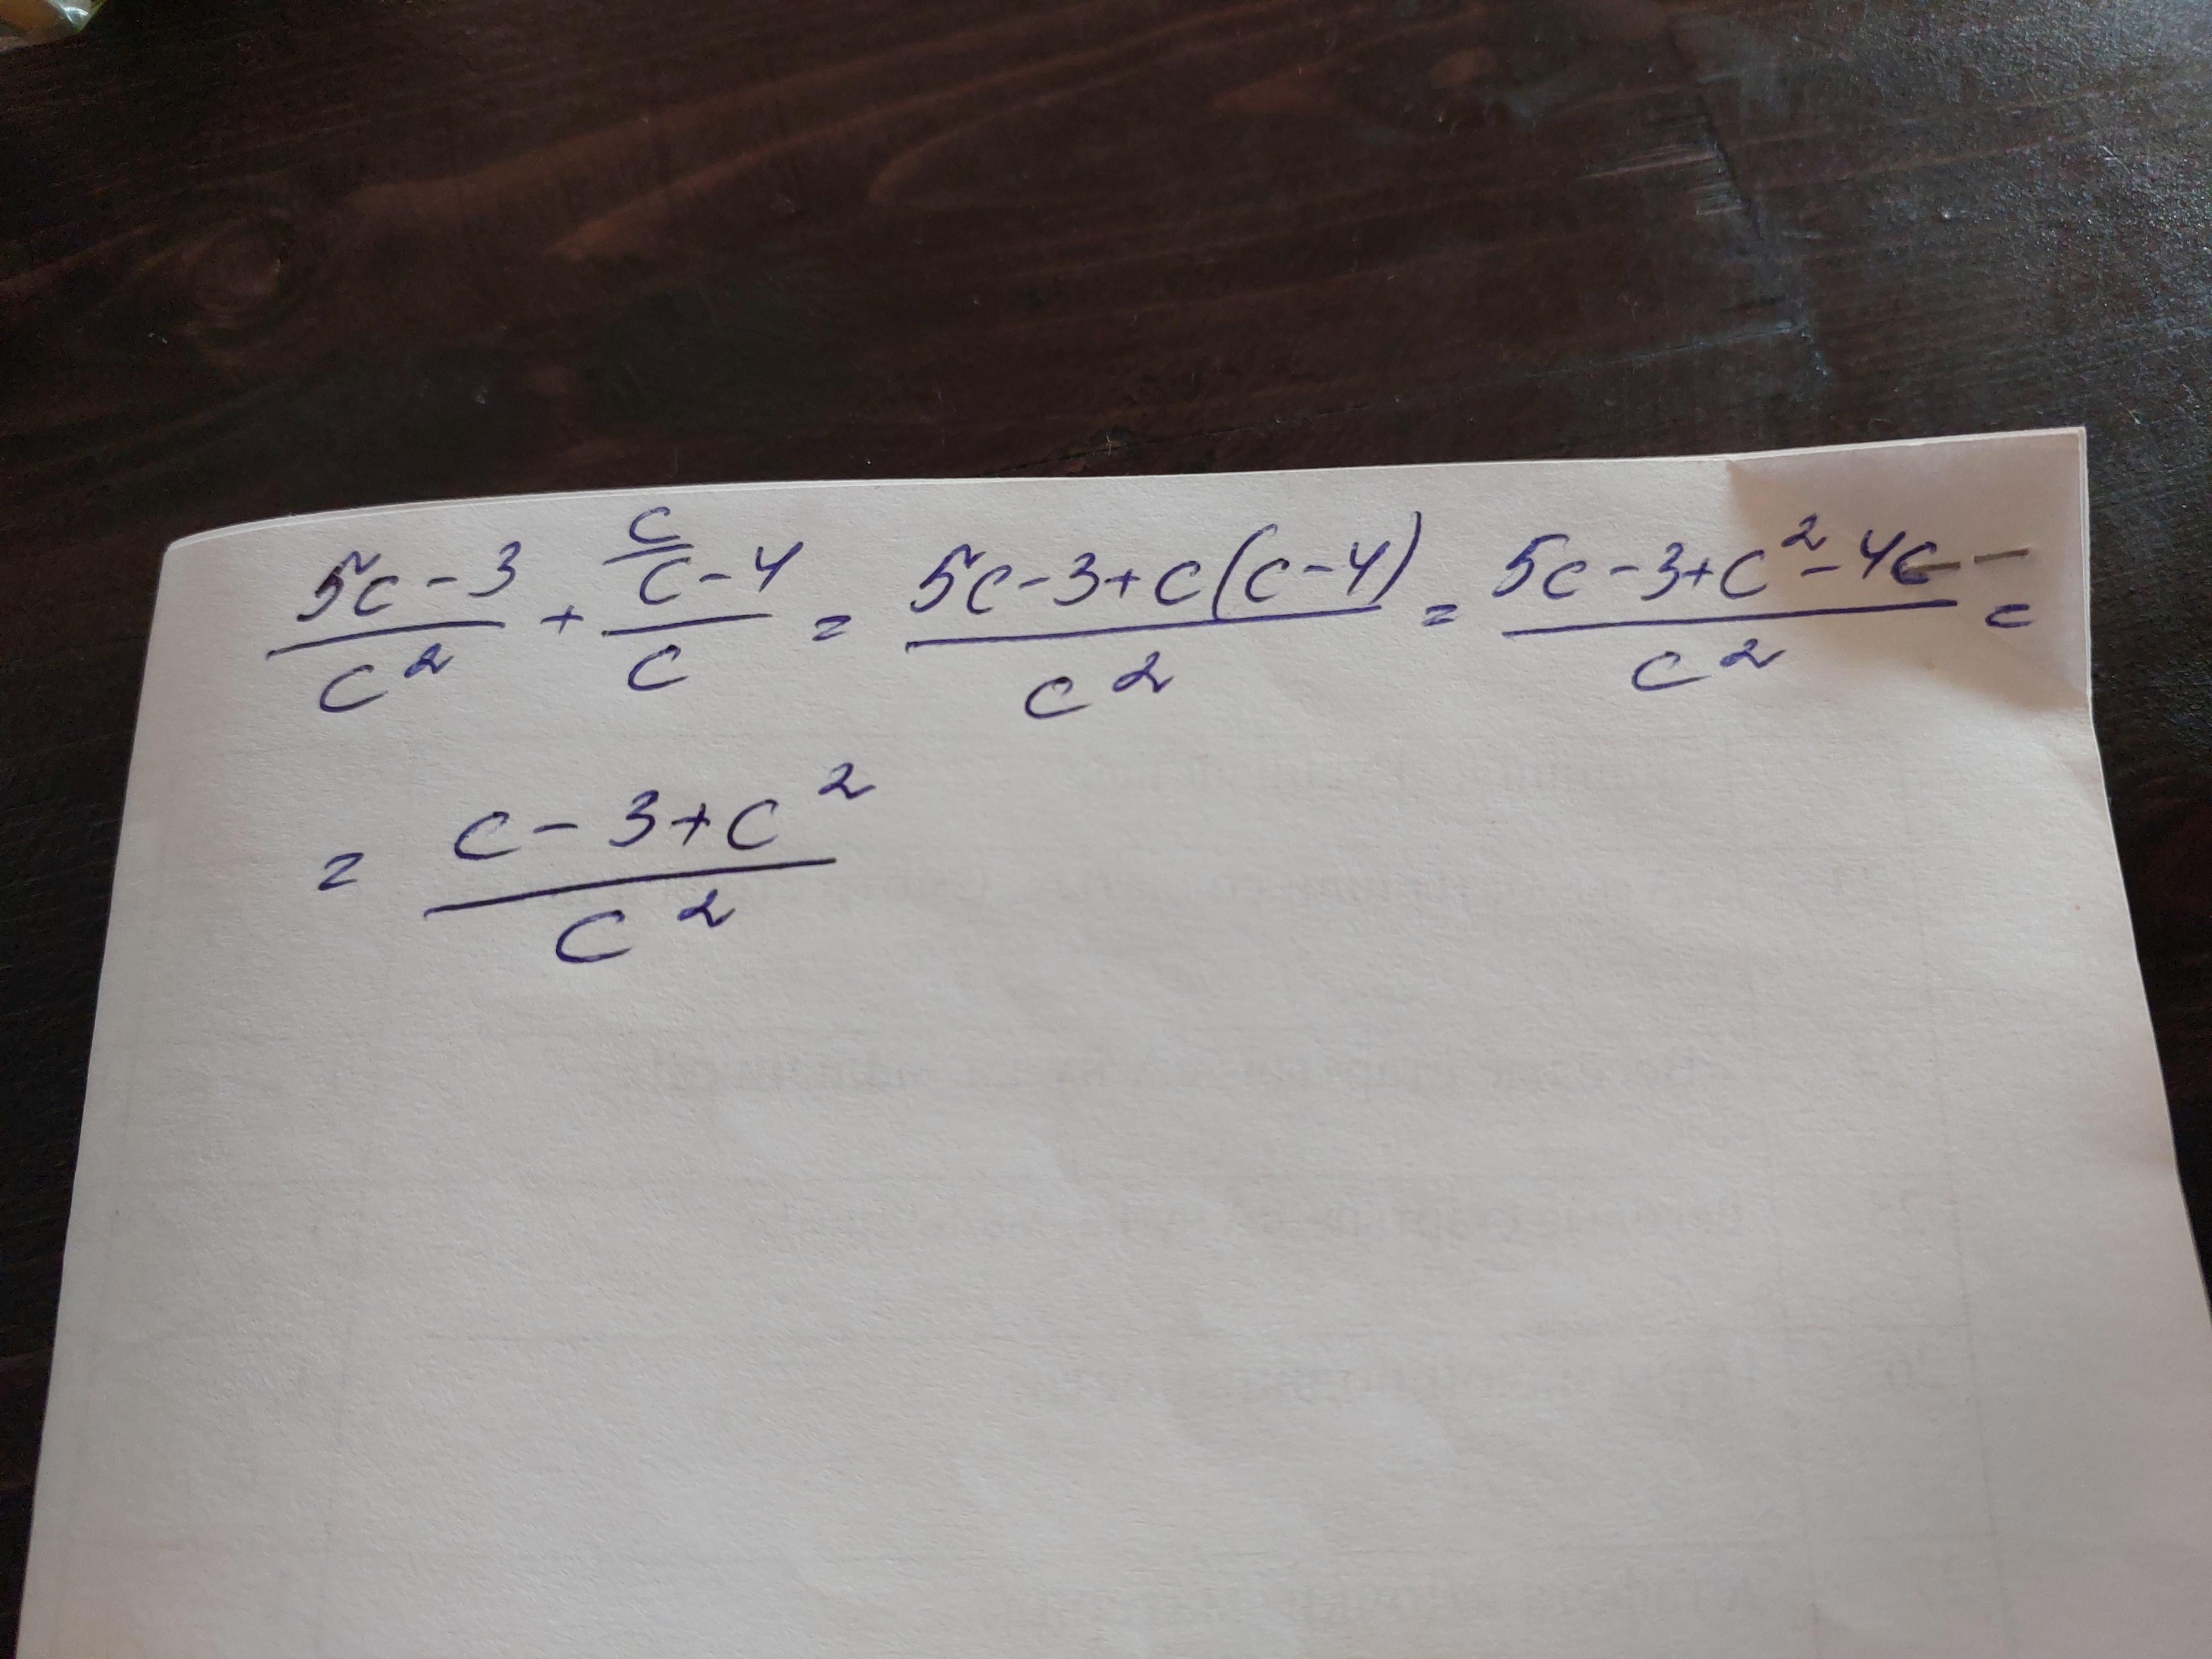 (5c-3)/c² + (c/ c-4)/c = (5c-3+c(c-4))/c² = (5c-3+c²-4c)/c² =
= (c-3+c²)/c²